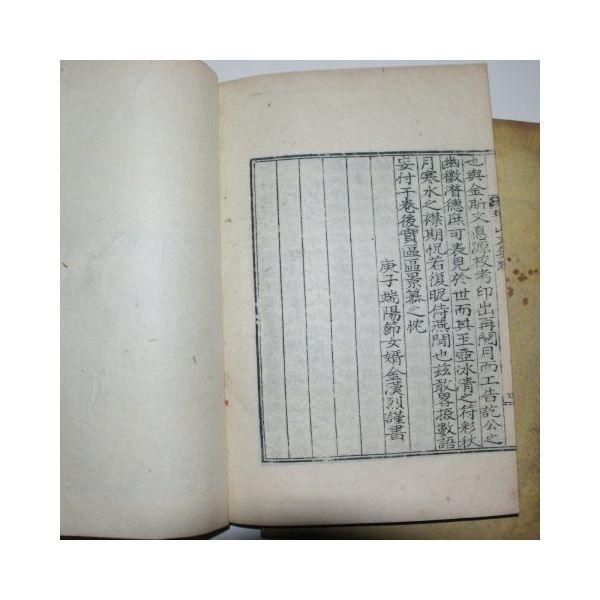 也與金斯文悳源校考印出再閱月而工告訖公之
幽徽潛德庶可表見於世而其玉壺冰清之符彩秋
月寒水之襟期怳若復昵侍燕閒也玆敢畧掇數語
妄付于卷後實區區景慕之忱
庚子端陽節女婿金漢烈謹書